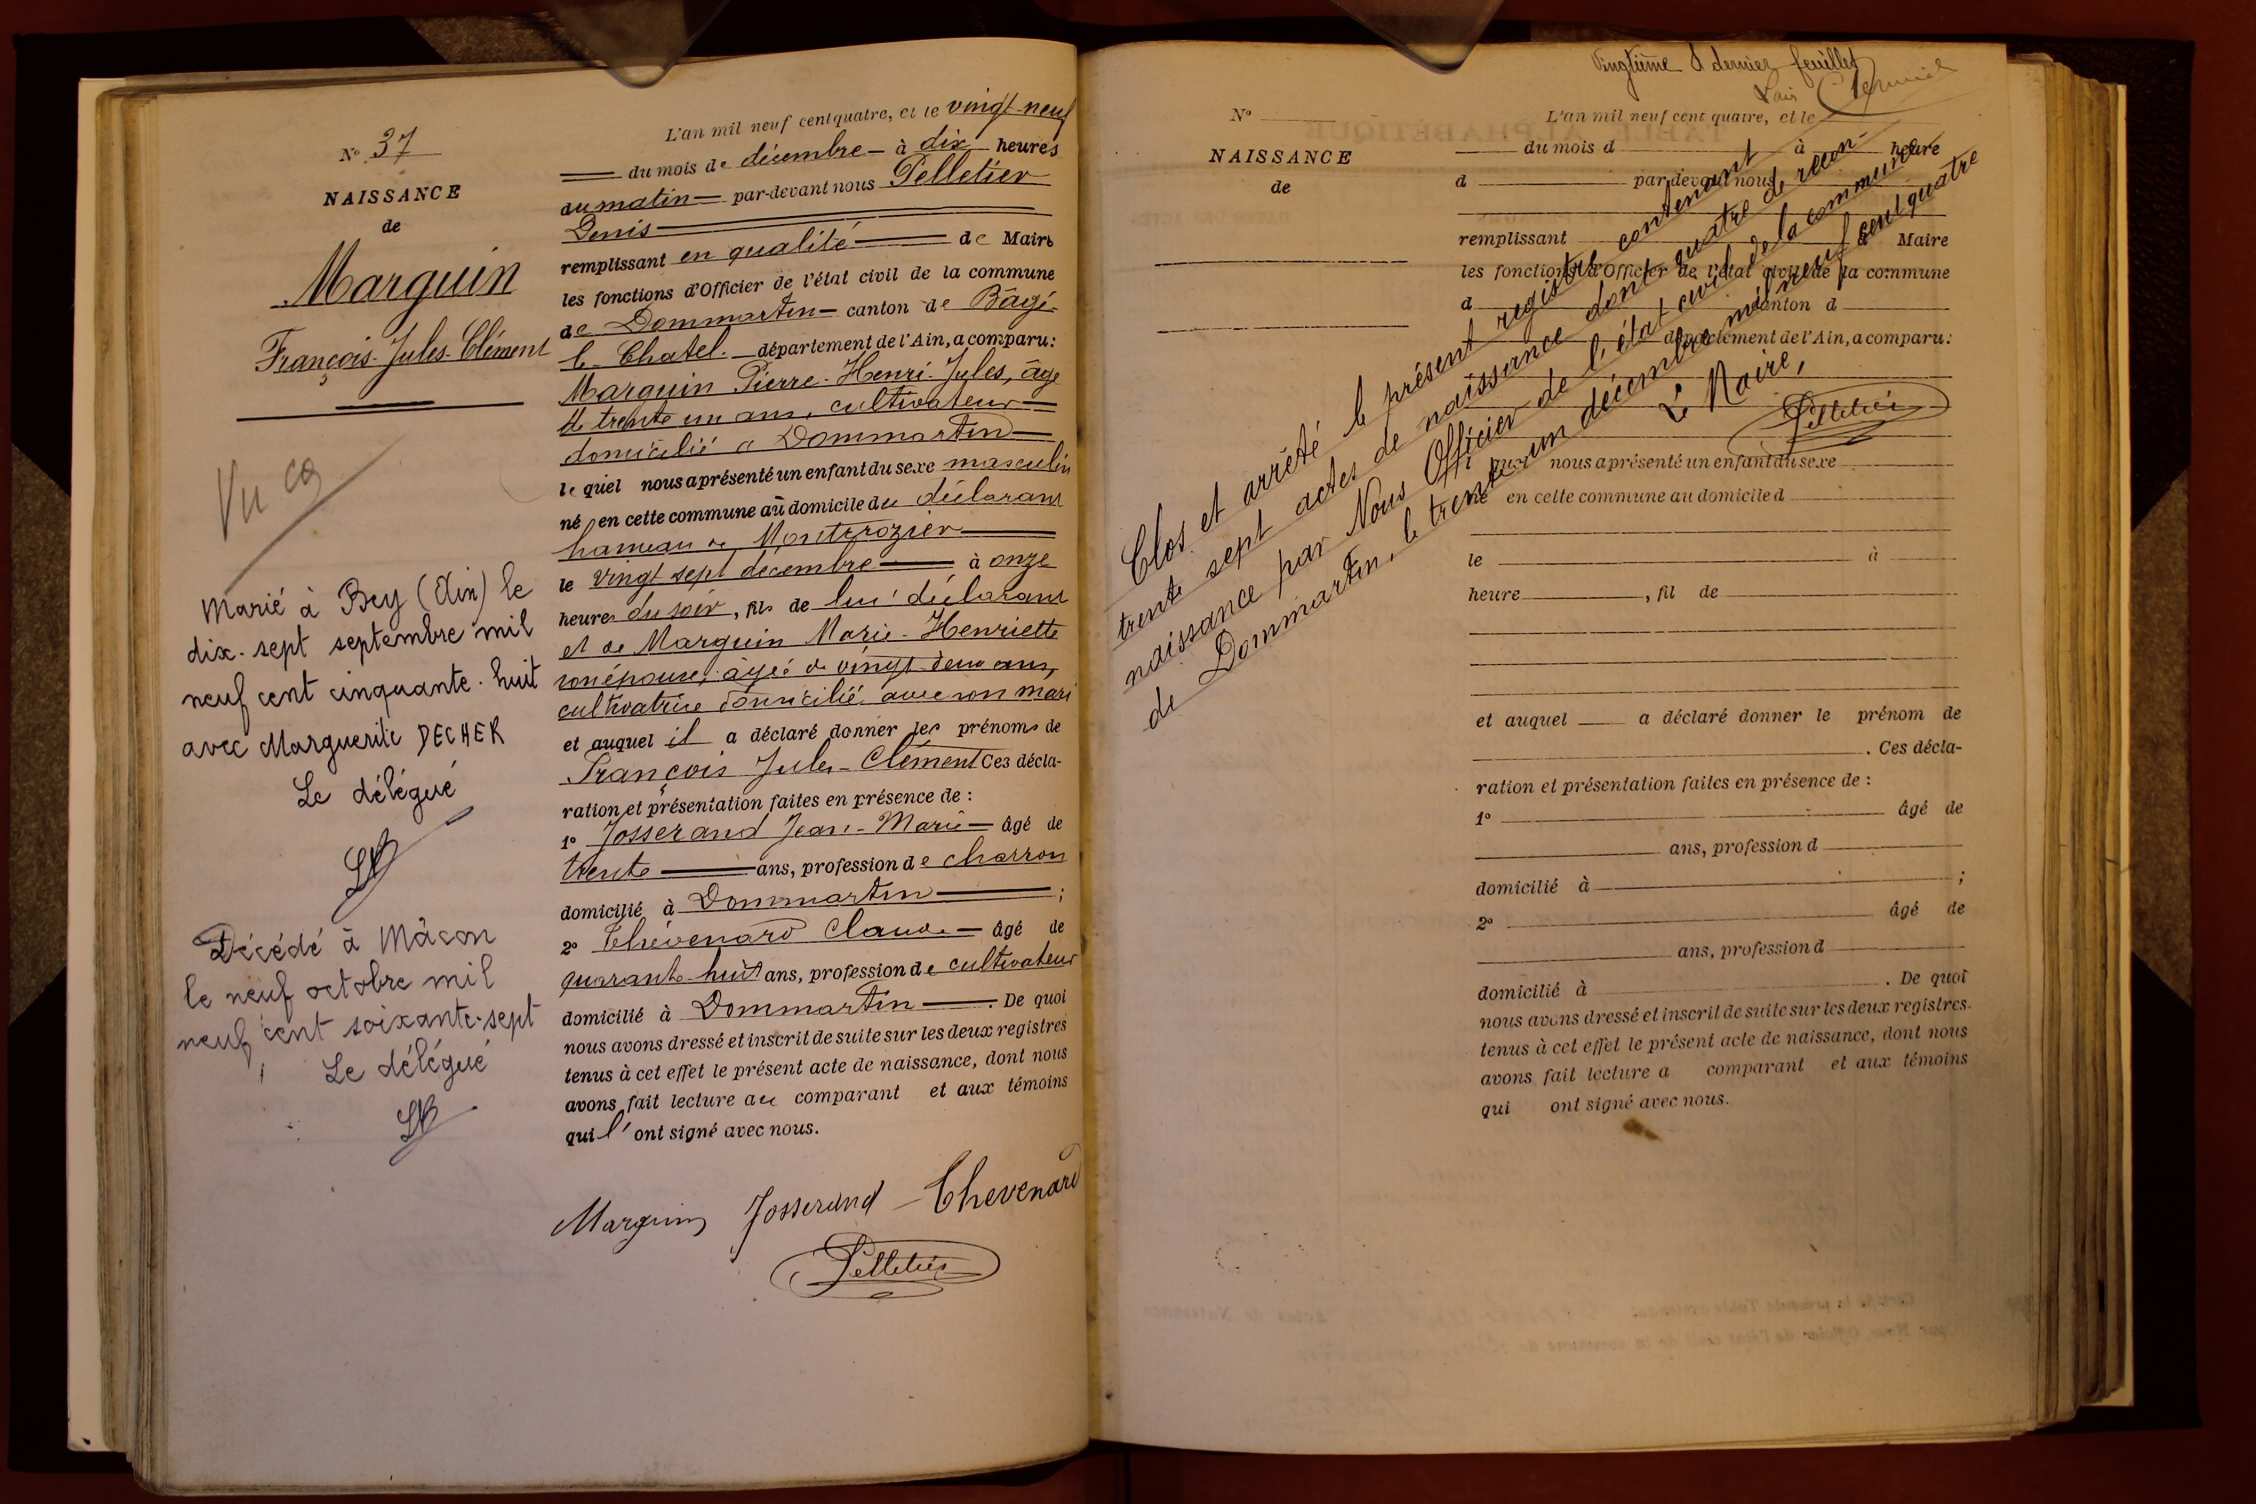 N° 37
NAISSANCE
de
Marguin
François-Jules-Clément
Vu
Marié à Bey (Ain) le
dix-sept septembre mil
neuf cent cinquante-huit
avec Marguerite DECHER
Le délégué
Décédé à Mâcon
le neuf octobre mil
neuf cent soixante-sept
Le délégué
L'an mil neuf cent quatre, et le vingt-neuf
du mois de décembre à dix heures
du matin par-devant nous Pelletier
Denis
remplissant en qualité de Maire
les fonctions d'Officier de l'état civil de la commune
de Dommartin canton de Bâgé-
le Chatel. département de l'Ain, a comparu:
Marguin Pierre-Henri-Jules, âgé
de trente un ans, cultivateur
domicilié à Dommartin
lequel nous a présenté un enfant du sexe masculin
né en cette commune au domicile du déclarant
hameau de Montrozier
le vingt sept décembre à onze
heures du soir, fils de lui déclarant
et de Marguin Marie-Henriette
son épouse, âgée de vingt-deux ans,
cultivatrice domicilié avec son mari
et auquel il a déclaré donner les prénoms de
François Jules-Clément Ces décla-
ration et présentation faites en présence de :
1° Josserand Jean-Marie âgé de
trente ans, profession de charron
domicilié à Dommartin ;
2° Thévenard Claude âgé de
quarante huit ans, profession de cultivateur
domicilié à Dommartin . De quoi
nous avons dressé et inscrit de suite sur les deux registres
tenus à cet effet le présent acte de naissance, dont nous
avons fait lecture au comparant et aux témoins
qui l' ont signé avec nous.
Marguin Josserand Thevenard
Pelletier
vingtième & dernier feuillet
N°
NAISSANCE
de
L'an mil neuf cent quatre, et le
du mois d à heure
d par-devant nous
remplissant d Maire
les fonctions d'Officier de l'état civil de la commune
d canton d
département de l'Ain, a comparu:
quel nous a présenté un enfant du sexe
né en cette commune au domicile d
le à
heure , fil de
et auquel a déclaré donner le prénom de
. Ces décla-
ration et présentation faites en présence de :
1° âgé de
ans, profession d
domicilié à ;
2° âgé de
ans, profession d
domicilié à . De quoi
nous avons dressé et inscrit de suite sur les deux registres
tenus à cet effet le présent acte de naissance, dont nous
avons fait lecture a comparant et aux témoins
qui ont signé avec nous.
Clos et arrêté le présent registre contenant
trente sept actes de naissance dont quatre de recon-
naissance par Nous Officier de l'état civil de la commune
de Dommartin, le trente un décembre mil neuf cent quatre
Le Maire,
Pelletier